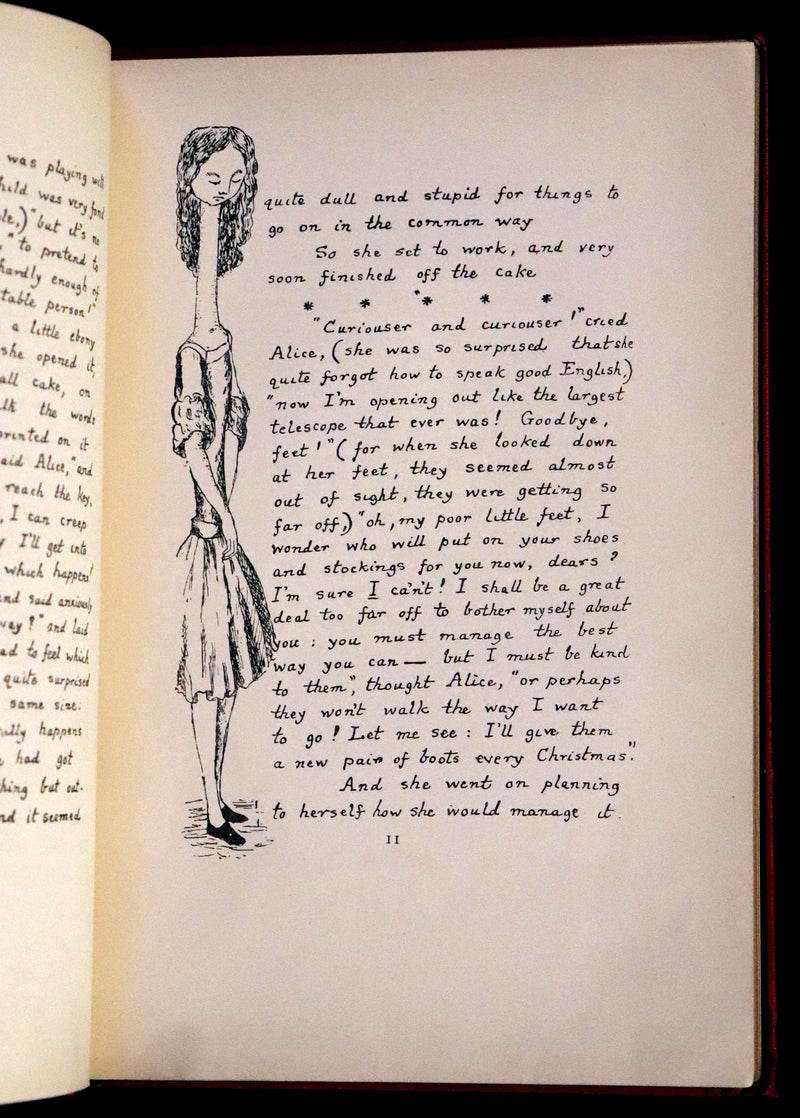 was playing with
child was very fond
ple,) "but it's no
"to pretend to
hardly enough of
table person!"
a little ebony
she opened it,
all cake, on
the words
printed on it
said Alice, "and
reach the key,
, I can creep
I'll get into
which happens!
and said anxiously
way?" and laid
to feel which
quite surprised
same size:
ally happens
had got
thing but out-
nd it seemed
quite dull and stupid for things to
go on in the common way
So she set to work, and very
soon finished off the cake
* * * * *
"Curiouser and curiouser!" cried
Alice, (she was so surprised that she
quite forgot how to speak good English,)
"now I'm opening out like the largest
telescope that ever was! Goodbye,
feet!" (for when she looked down
at her feet, they seemed almost
out of sight, they were getting so
far off,) "oh, my poor little feet, I
wonder who will put on your shoes
and stockings for you now, dears?
I'm sure I can't! I shall be a great
deal too far off to bother myself about
you: you must manage the best
way you can — but I must be kind
to them", thought Alice, "or perhaps
they won't walk the way I want
to go! Let me see: I'll give them
a new pair of boots every Christmas."
And she went on planning
to herself how she would manage it.
11